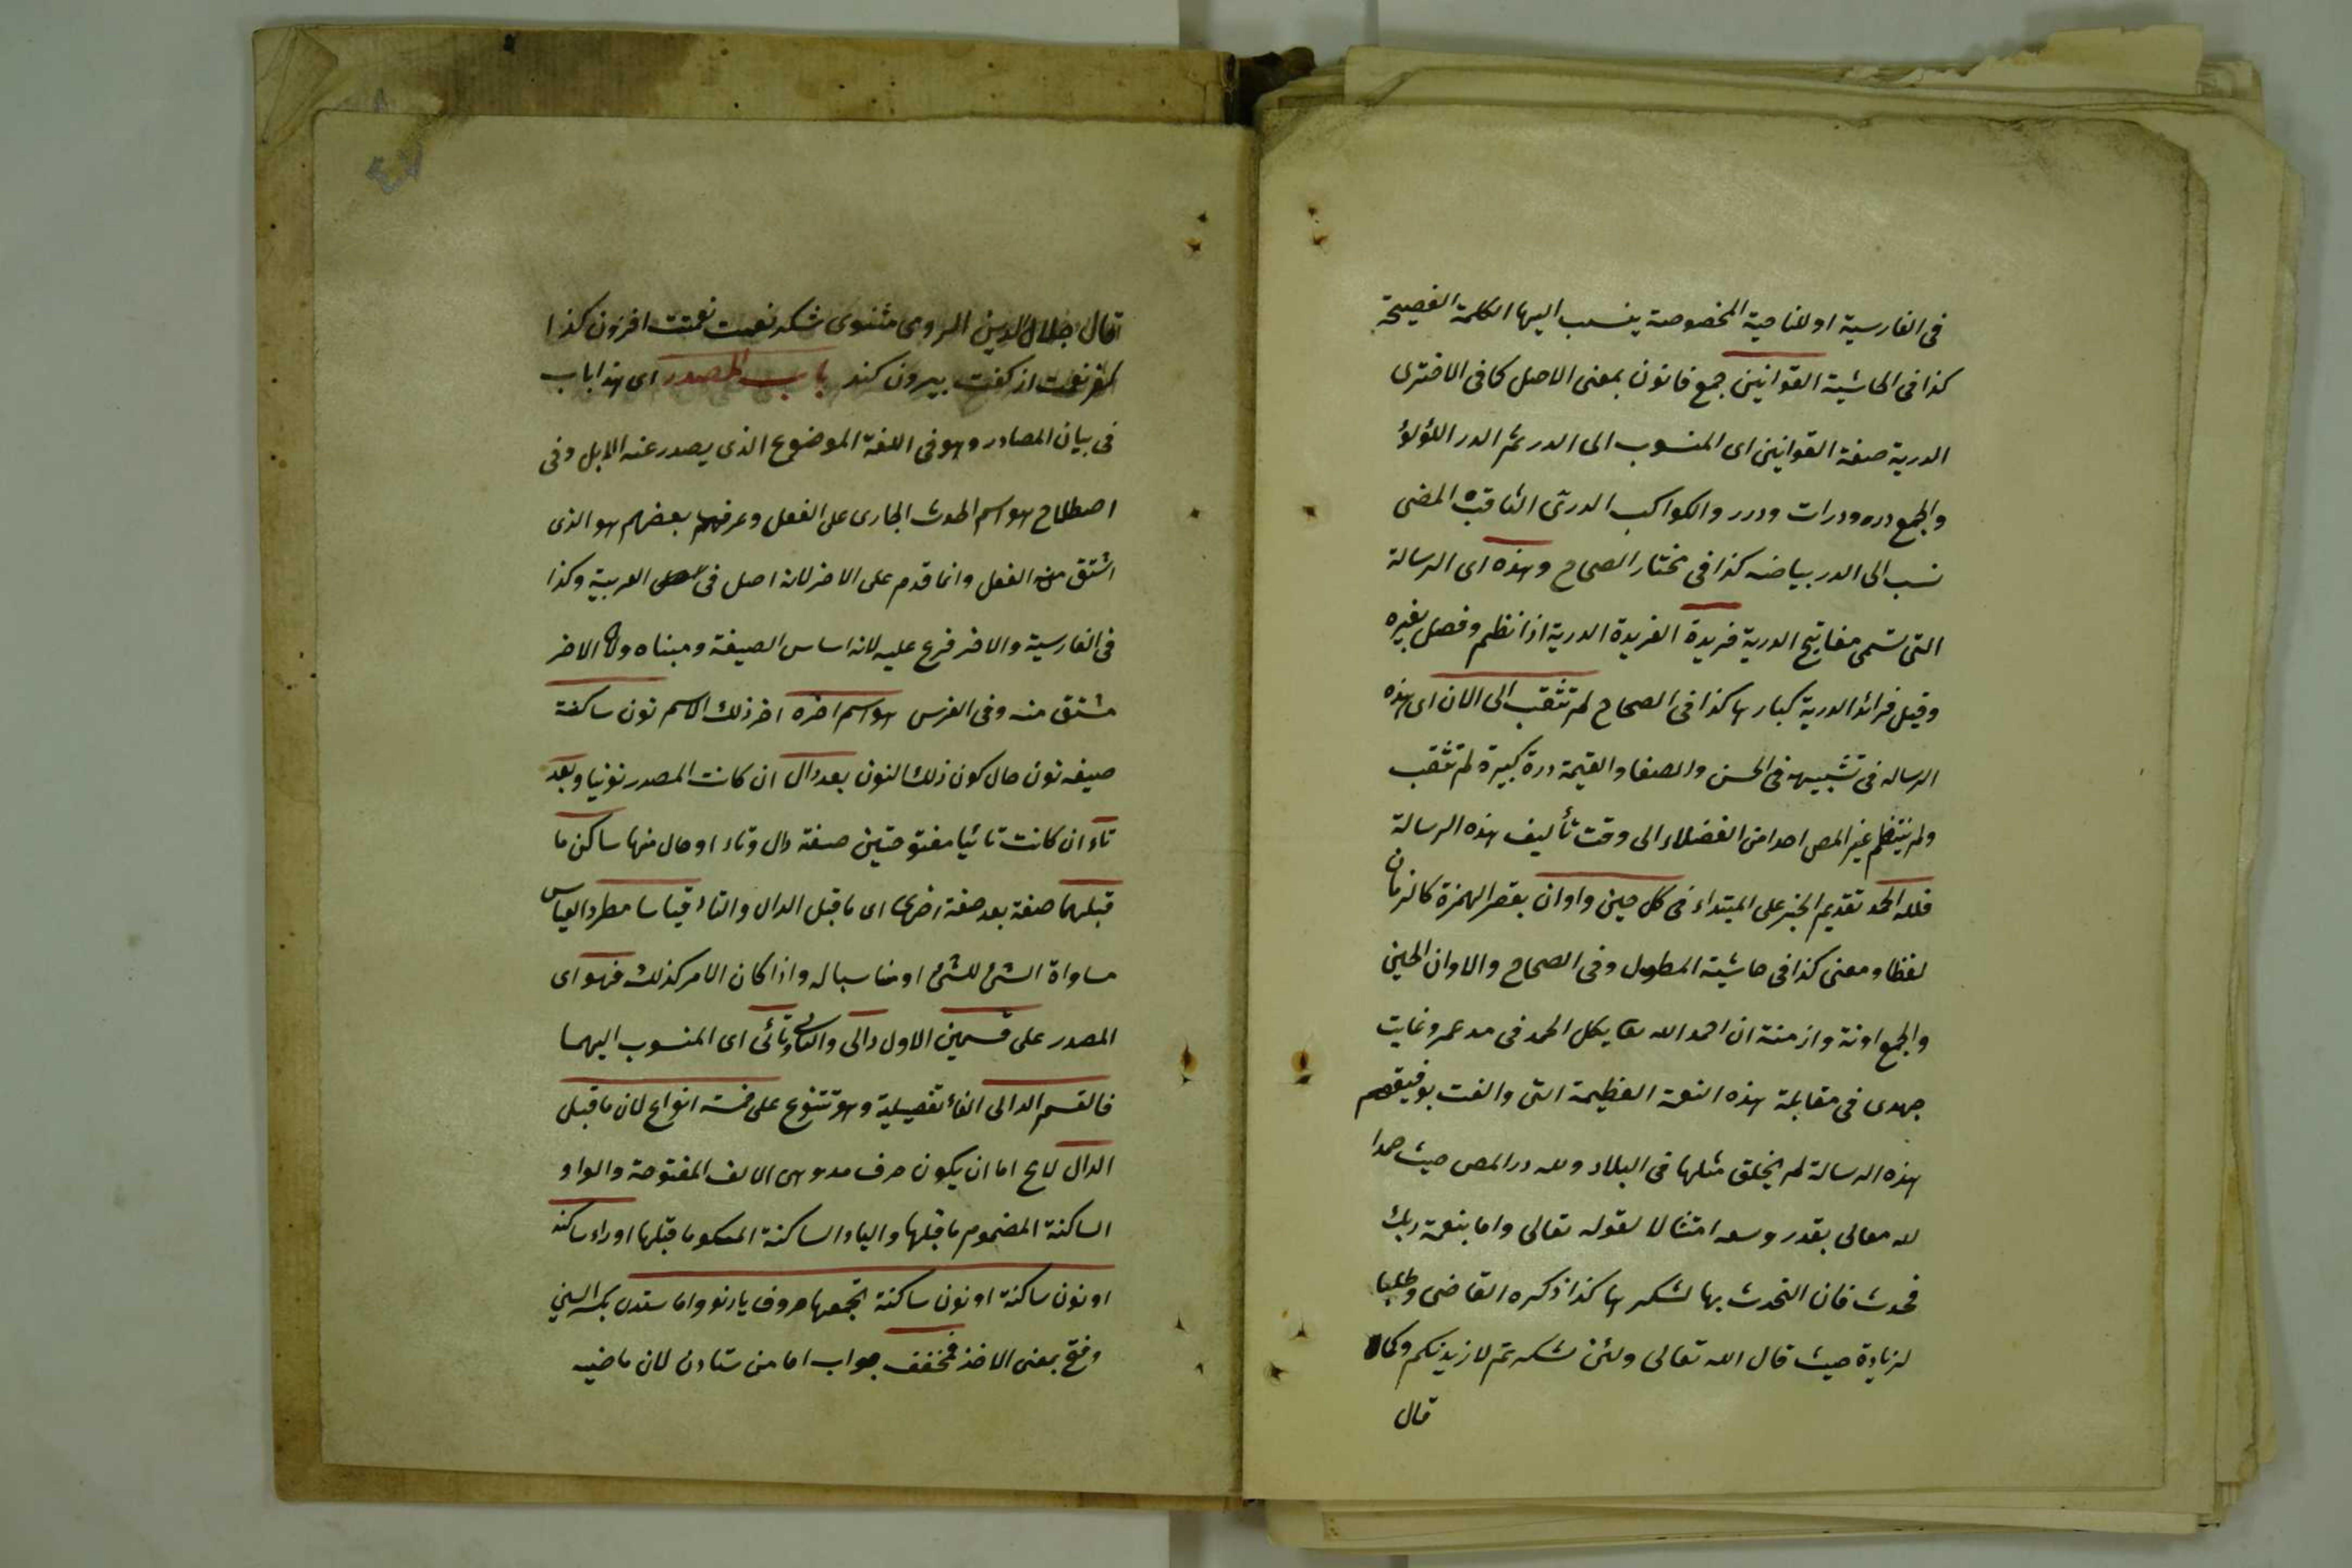 فى الفارسية او للناحية المخصوصة ينسب اليها الكلمة الفصيحة
كذا فى الحاشية القوانين جمع قانون بمعنى الاصل كما فى الاخترى
الدرية صفة القوانين اى المنسوب الى الدر ثم الدر اللؤلؤ
والجمع دره ودرات ودرر والكواكب الدرى الثاقبة المضى
نسب الى الدر بياضه كذا فى مختار الصحاح وهذه اى الرسالة
التى تسمى مفاتيح الدرية فريدة الفريدة الدرية اذا نظم وفصل بغيره
وقيل فرائد الدرية كبارها كذا فى الصحاح لم تثقب الى الان اى هذه
الرساله فى تشبيهه فى الحسن والصفا والقيمة درة كبيرة لم تثقب
ولم ينتظم غير المص احدا من الفضلاء الى وقت تأليف هذه الرسالة
فلله الحمد تقديم الخبر على المبتداء فى كل حين واوان بقصر الهمزة كالزمان
لفظا ومعنى كذا فى حاشية المطول وفى الصحاح والاوان الحين
والجمع اونة وازمنة ان احمد الله تعا بكل الحمد فى مد عمر وغايت
جهدى فى مقابلة هذه النعمة العظيمة التى والفت بوفيقهم
هذه الرسالة لم يخلق مثلها فى البلاد ولله در المص حيث حمدا
لله معالى بقدر وسعه امتثالا لقوله تعالى واما بنعمة ربك
فحدث فان التحدث بها لشكرها كذا ذكره القاضى وطلبا
لزيادة حيث قال الله تعالى ولئن شكرتم لازيدنكم وكما
قال
قال جلال الدين الروى مثنوى شكر نعمت نعمتت افزون كند
كفر نعمت از كفت بيرون كند باب المصدر اى هذا باب
فى بيان المصادر وهو فى اللغة الموضوع الذى يصدر عنه الابل وفى
اصطلاح هو اسم الحدث الجارى على الفعل وعرفهم بعضهم هو الذى
اشتق منه الفعل وانما قدم على الاخر لانه اصل فى العربية وكذا
فى الفارسية والاخر فرع عليه لانه اساس الصيغة ومبناه ولان الاخر
مشتق منه وفى الفرس هو اسم اخره اخر ذلك الاسم نون ساكنة
صيغه نون حال كون ذلك النون بعد دال ان كانت المصدر نونيا وبعد
تاء ان كانت تائيا مفتوحتين صفة دال وتاء او حال منها ساكن ما
قبلهما صفة بعد صفة اخرى اى ما قبل الدال والتاء قياسا مطردا لقياس
مساواة الشئ للشئ او مناسبا له واذا كان الامر كذلك فهو اى
المصدر على قسمين الاول دالى والثانى تائى اى المنسوب اليهما
فالقسم الدالى الفاء تفصيلية وهو تتنوع على خمسة انواع لان ما قبل
الدال لا يخ اما ان يكون حرف مد وهى الالف المفتوحة والواو
الساكنة المضموم ما قبلها والياء الساكنة المكسو ما قبلها اوراء ساكنه
او نون ساكنة او نون ساكنة تجمعها حروف يارنو واما ستدن بكسر السين
وفتح بمعنى الاخذ فمخفف جواب اما من ستادن لان ماضيه